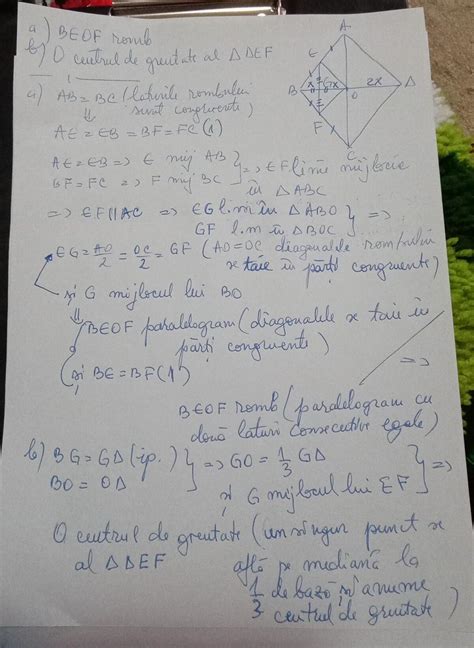 a) BEOF romb
b) O centrul de greutate al △DEF
a) AB = BC (laturile rombului
sunt congruente)
⇓
AE = EB = BF = FC (1)
AE = EB => E mij AB
BF = FC => F mij BC } => EF linie mijlocie
în △ABC
=> EF || AC => EG l.m în △ABO
GF l.m în △BOC } =>
EG = AO/2 = OC/2 = GF (AO = OC diagonalele rombului
se taie în părți congruente)
și G mijlocul lui BO
⇓
BEOF paralelogram (diagonalele se taie în
părți congruente)
și BE = BF (1)
=>
BEOF romb (paralelogram cu
două laturi consecutive egale)
b) BG = GO (ip.)
BO = OD } => GO = 1/3 GD
și G mijlocul lui EF } =>
O centrul de greutate (un singur punct se
al △DEF află pe mediană la
1/3 de bază și anume
centrul de greutate)
A
E
B
G
x
2x
D
O
F
C